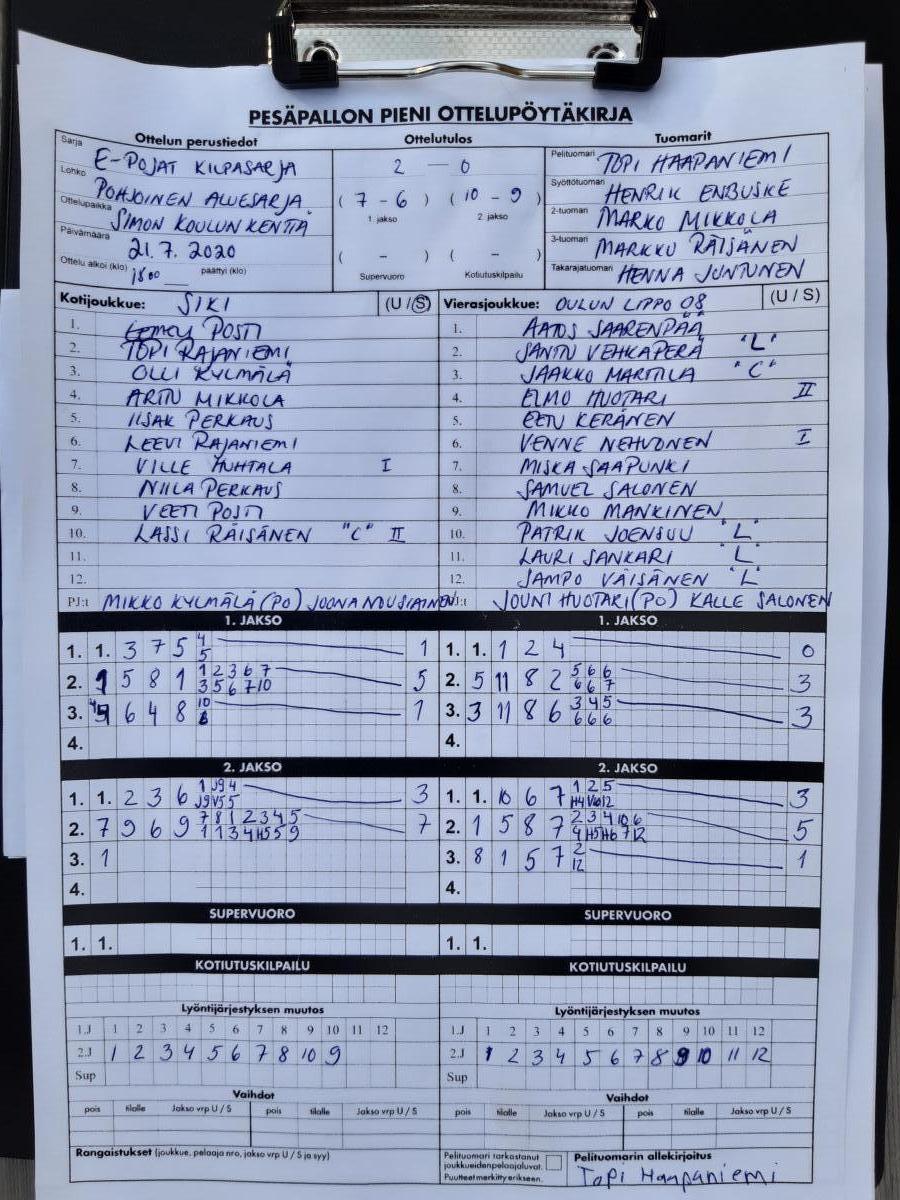 PESÄPALLON PIENI OTTELUPÖYTÄKIRJA
Ottelun perustiedot
Sarja E-POJAT KILPASARJA
Lohko POHJOINEN ALUESARJA
Ottelupaikka SIMON KOULUN KENTTÄ
Päivämäärä 21.7.2020
Ottelu alkoi (klo) 1800 päättyi (klo)
Ottelutulos
2 - 0
(7 - 6) (10 - 9)
1. jakso 2. jakso
( - ) ( - )
Supervuoro Kotiutuskilpailu
Tuomarit
Pelituomari TOPI HAAPANIEMI
Syöttötuomari HENRIK ENBUSKE
2-tuomari MARKO MIKKOLA
3-tuomari MARKKU RÄISÄNEN
Takarajatuomari HENNA JUNTUNEN
Kotijoukkue: SIKI (U / S)
1. POSTI
2. TOPI RAJANIEMI
3. OLLI KYLMÄLÄ
4. ARTTU MIKKOLA
5. IISAK PERKAUS
6. LEEVI RAJANIEMI
7. VILLE HUHTALA I
8. NIILA PERKAUS
9. VEETI POSTI
10. LASSI RÄISÄNEN "C" II
11.
12.
PJ:t MIKKO KYLMÄLÄ (PO) JOONA NOUSIAINEN
Vierasjoukkue: OULUN LIPPO 08 (U / S)
1. AATOS SAARENPÄÄ
2. SANTTU VEHKAPERÄ "L"
3. JAAKKO MARTTILA "C"
4. ELMO HUOTARI II
5. EETU KERÄNEN
6. VENNE NEHVONEN I
7. MISKA SAAPUNKI
8. SAMUEL SALONEN
9. MIKKO MANKINEN
10. PATRIK JOENSUU "L"
11. LAURI SANKARI "L"
12. SAMPO VÄISÄNEN "L"
PJ:t JOUNI HUOTARI (PO) KALLE SALONEN
1. JAKSO
1. 1. 3 7 5 4 1
5
2. 1 5 8 1 1 2 3 6 7 5
3 5 6 7 10
3. 6 4 8 10 1
8
4.
1. JAKSO
1. 1. 1 2 4 0
2. 5 11 8 2 5 6 6 3
6 6 7
3. 3 11 8 6 3 4 5 3
6 6 6
4.
2. JAKSO
1. 1. 2 3 6 1 J9 4 3
J9 V5 5
2. 7 9 6 9 7 8 1 2 3 4 5 7
1 1 3 4 H5 5 9
3. 1
4.
2. JAKSO
1. 1. 10 6 7 1 2 5 3
H4 V6 12
2. 1 5 8 7 2 3 4 10 6 5
4 H5 H6 7 12
3. 8 1 5 7 2 1
12
4.
SUPERVUORO
1. 1.
SUPERVUORO
1. 1.
KOTIUTUSKILPAILU
KOTIUTUSKILPAILU
Lyöntijärjestyksen muutos
1.J 1 2 3 4 5 6 7 8 9 10 11 12
2.J 1 2 3 4 5 6 7 8 10 9
Sup
Lyöntijärjestyksen muutos
1.J 1 2 3 4 5 6 7 8 9 10 11 12
2.J 1 2 3 4 5 6 7 8 9 10 11 12
Sup
Vaihdot
pois tilalle Jakso vrp U / S pois tilalle Jakso vrp U / S
Vaihdot
pois tilalle Jakso vrp U / S pois tilalle Jakso vrp U / S
Rangaistukset (joukkue, pelaaja nro, jakso vrp U / S ja syy)
Pelituomari tarkastanut
joukkueiden pelaajaluvat.
Puutteet merkitty erikseen.
Pelituomarin allekirjoitus
Topi Haapaniemi